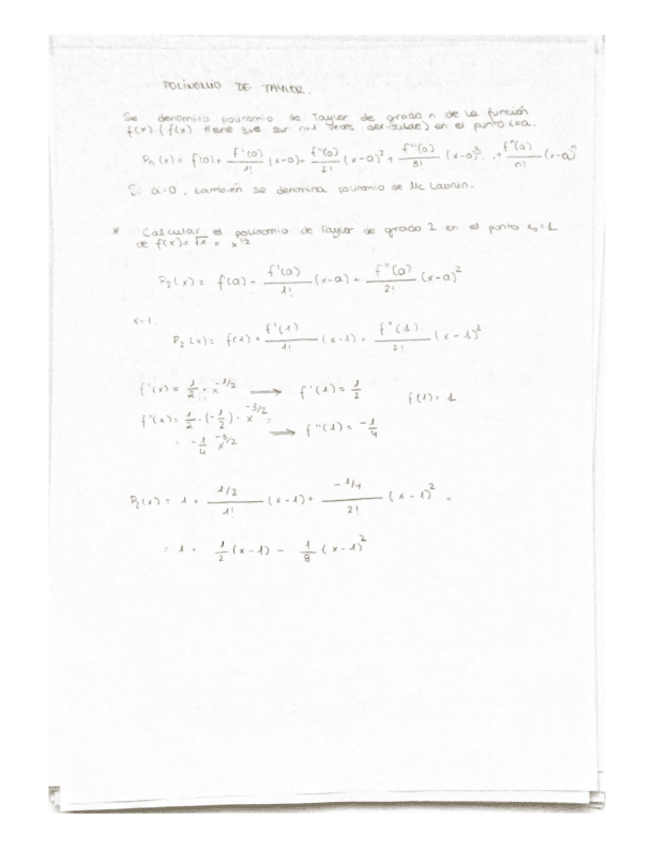 POLINOMIO DE TAYLOR.
Se denomina polinomio de Taylor de grado n de la función
f(x) (f(x) tiene que ser n+1 veces derivable) en el punto x=a.
Pn(x) = f(a) + f'(a)/1! (x-a) + f''(a)/2! (x-a)² + f'''(a)/3! (x-a)³ ... + fⁿ(a)/n! (x-a)ⁿ
Si a=0, también se denomina polinomio de Mc Laurin.
* Calcular el polinomio de Taylor de grado 2 en el punto x₀=1
de f(x) = √x = x^1/2
P₂(x) = f(a) + f'(a)/1! (x-a) + f''(a)/2! (x-a)²
x=1
P₂(x) = f(1) + f'(1)/1! (x-1) + f''(1)/2! (x-1)²
f'(x) = 1/2 · x^-1/2 ⟶ f'(1) = 1/2 f(1) = 1
f''(x) = 1/2 · (-1/2) · x^-3/2 =
= -1/4 x^-3/2 ⟶ f''(1) = -1/4
P₂(x) = 1 + 1/2/1! (x-1) + -1/4/2! (x-1)² =
= 1 + 1/2 (x-1) - 1/8 (x-1)²